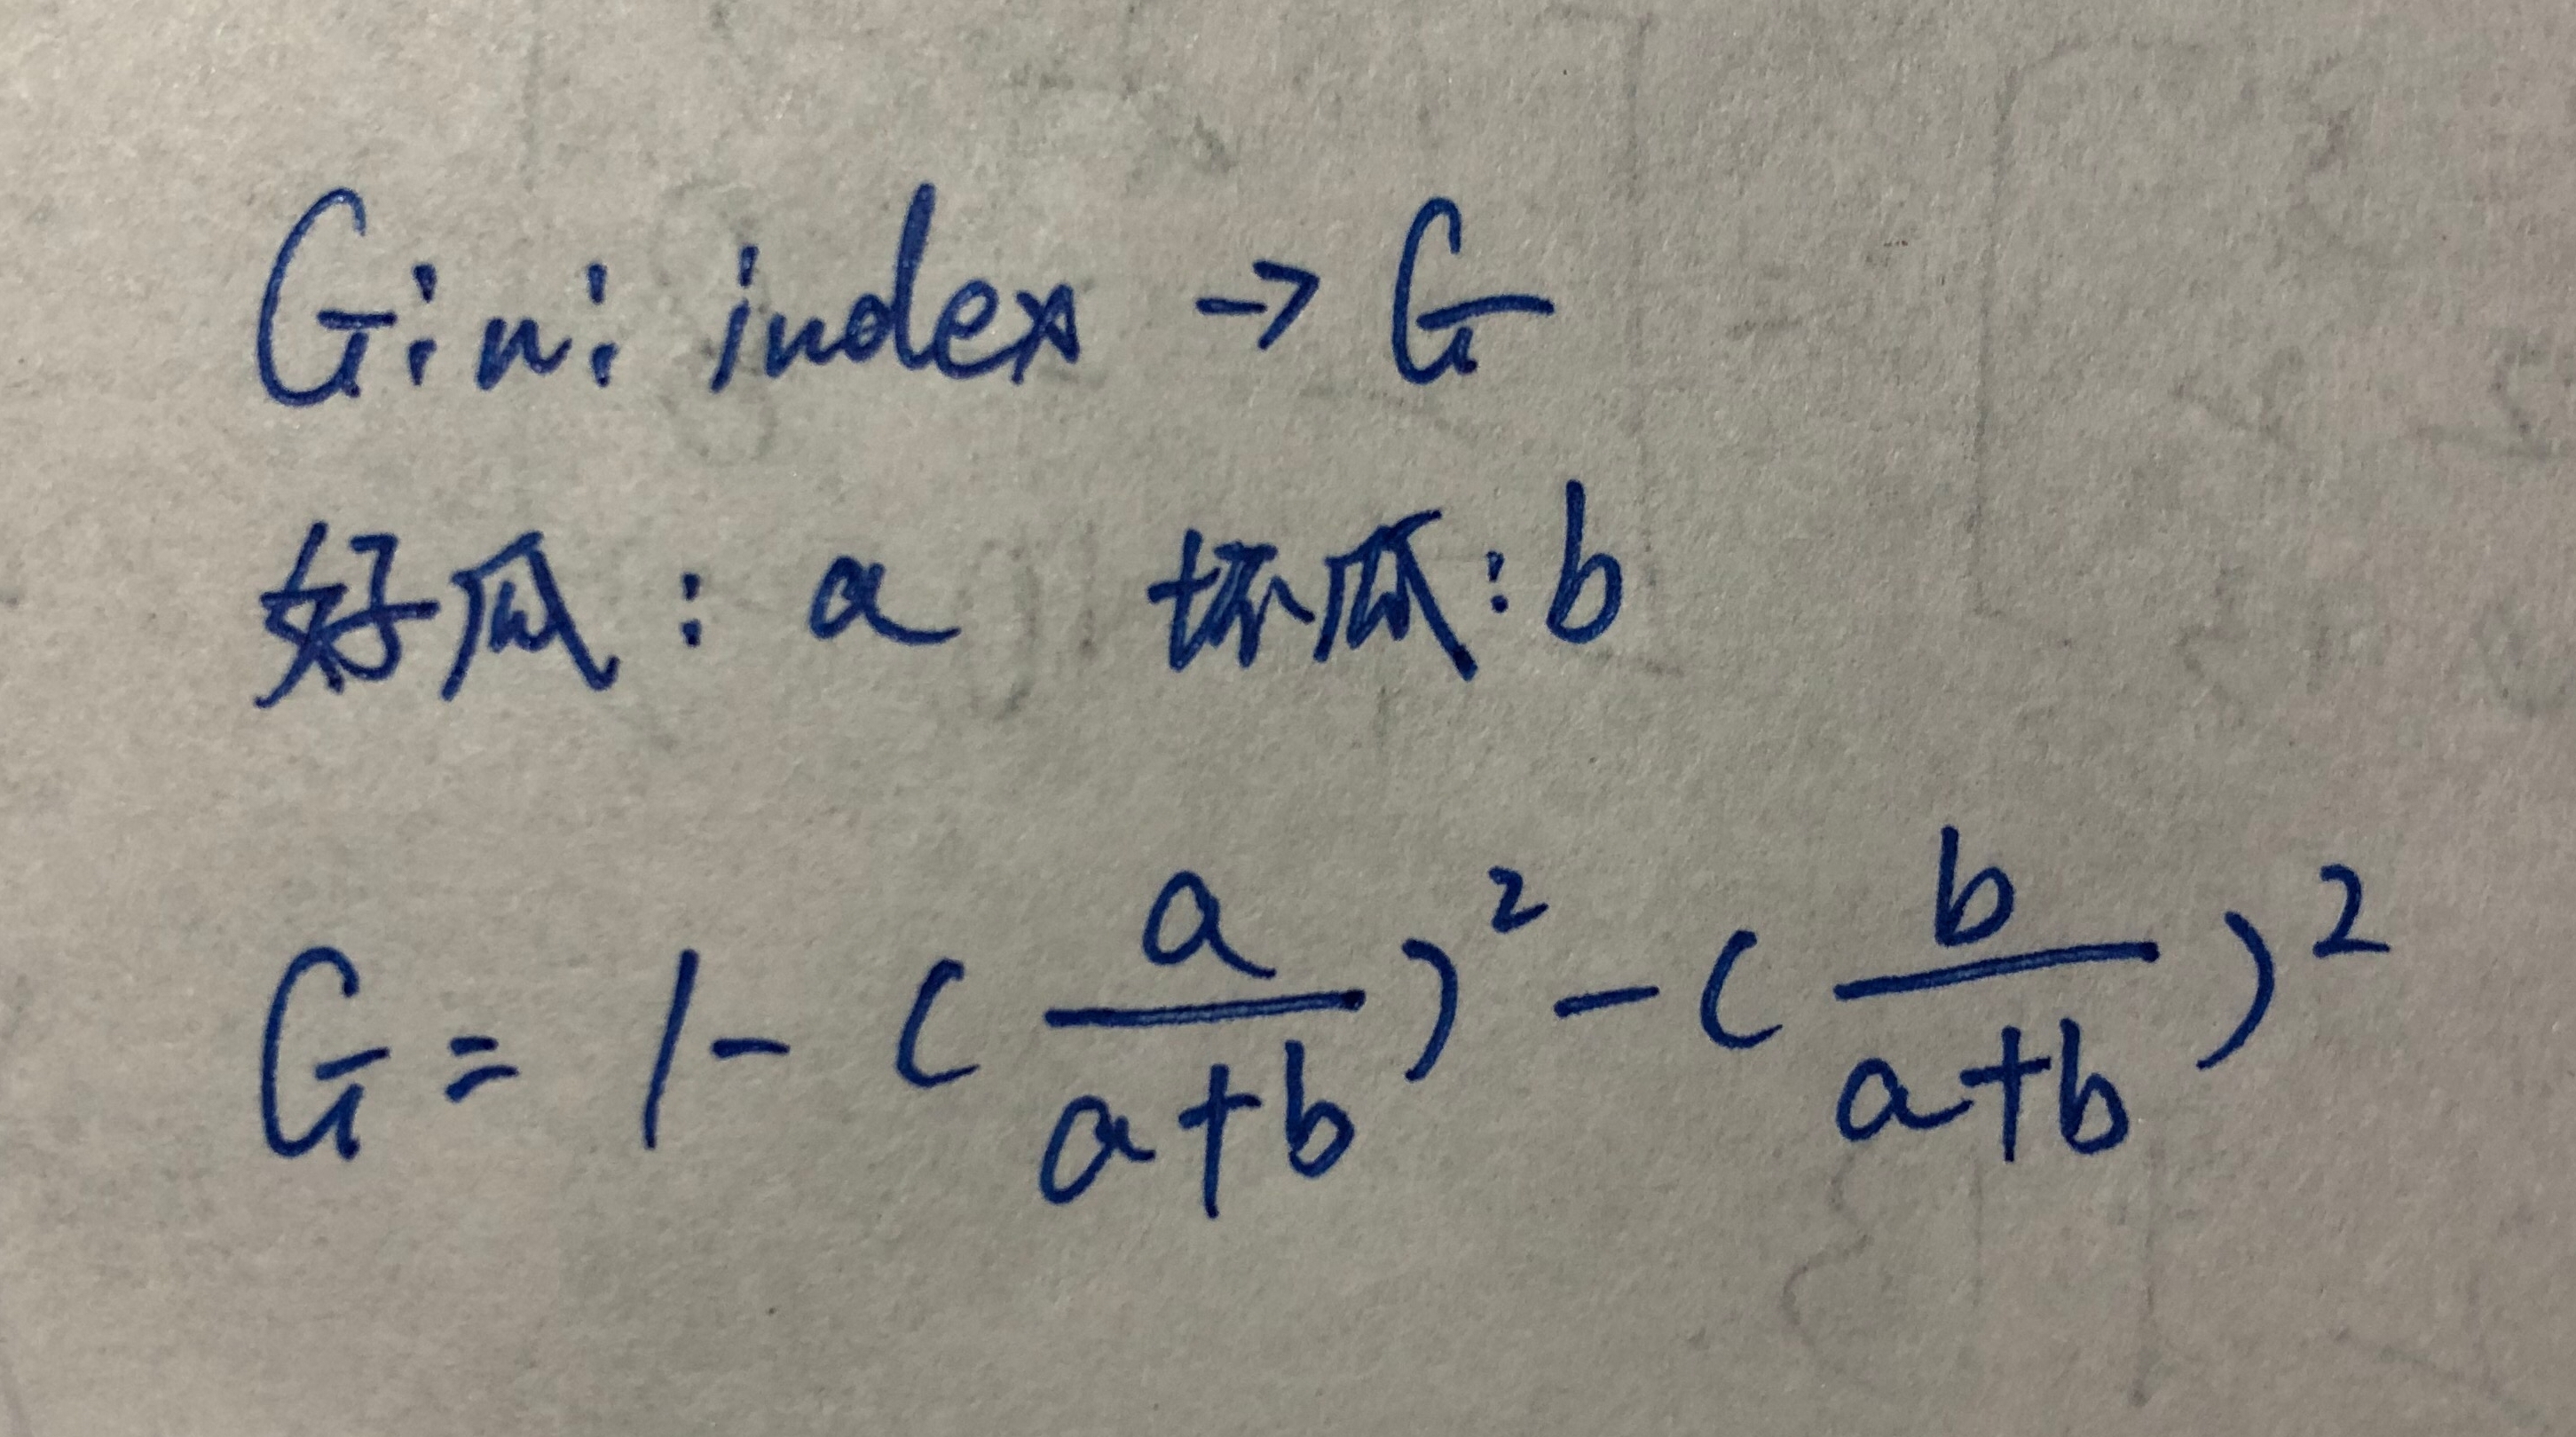 Gini index → G
好瓜: a 坏瓜: b
G = 1 - (a/(a+b))² - (b/(a+b))²